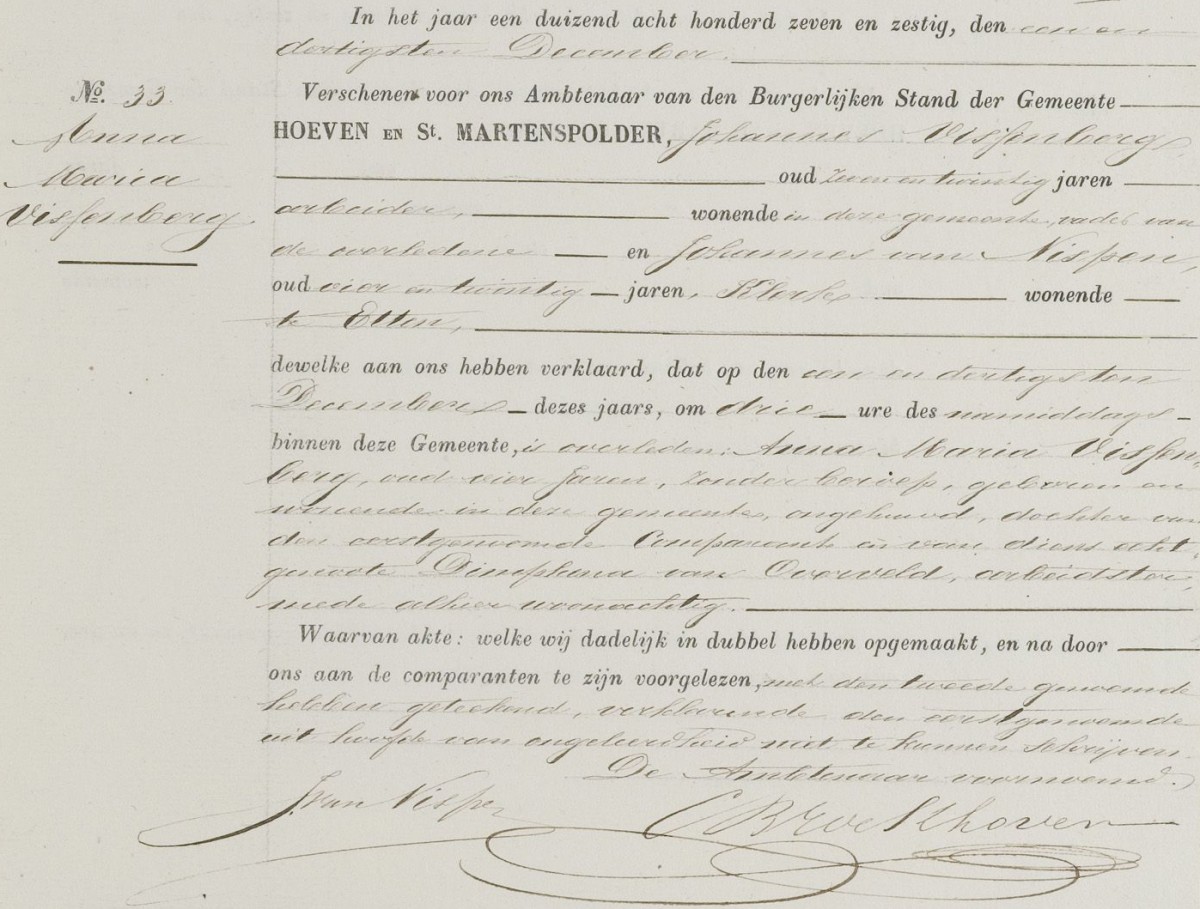 In het jaar een duizend acht honderd zeven en zestig, den een en
dertigsten December.
No. 33.
Anna
Maria
Vissenberg.
Verschenen voor ons Ambtenaar van den Burgerlijken Stand der Gemeente
HOEVEN EN St. MARTENSPOLDER, Johannes Vissenberg,
oud zeven en twintig jaren
arbeider, wonende in deze gemeente, vader van
de overledene en Johannes van Nispen,
oud vier en twintig jaren, Klerk wonende
te Etten,
dewelke aan ons hebben verklaard, dat op den een en dertigsten
December dezes jaars, om drie ure des namiddags
binnen deze Gemeente, is overleden: Anna Maria Vissen,
berg, oud vier jaren, zonder beroep, geboren en
wonende in deze gemeente, ongehuwd, dochter van
den eerstgenoemde Comparant en van diens echt,
genoote Dimphena van Overveld, arbeidster,
mede alhier woonachtig.
Waarvan akte: welke wij dadelijk in dubbel hebben opgemaakt, en na door
ons aan de comparanten te zijn voorgelezen, met den tweede genoemde
hebben geteekend, verklarende den eerstgenoemde
uit hoofde van ongeleerdheid niet te kunnen schrijven.
De Ambtenaar voornoemd.
J. van Nispen